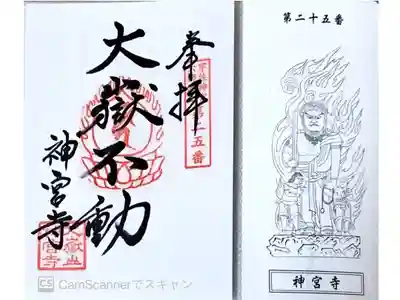 奉拝
第二十五番
大嶽不動
神宮寺
CS CamScannerでスキャン
第二十五番
神宮寺